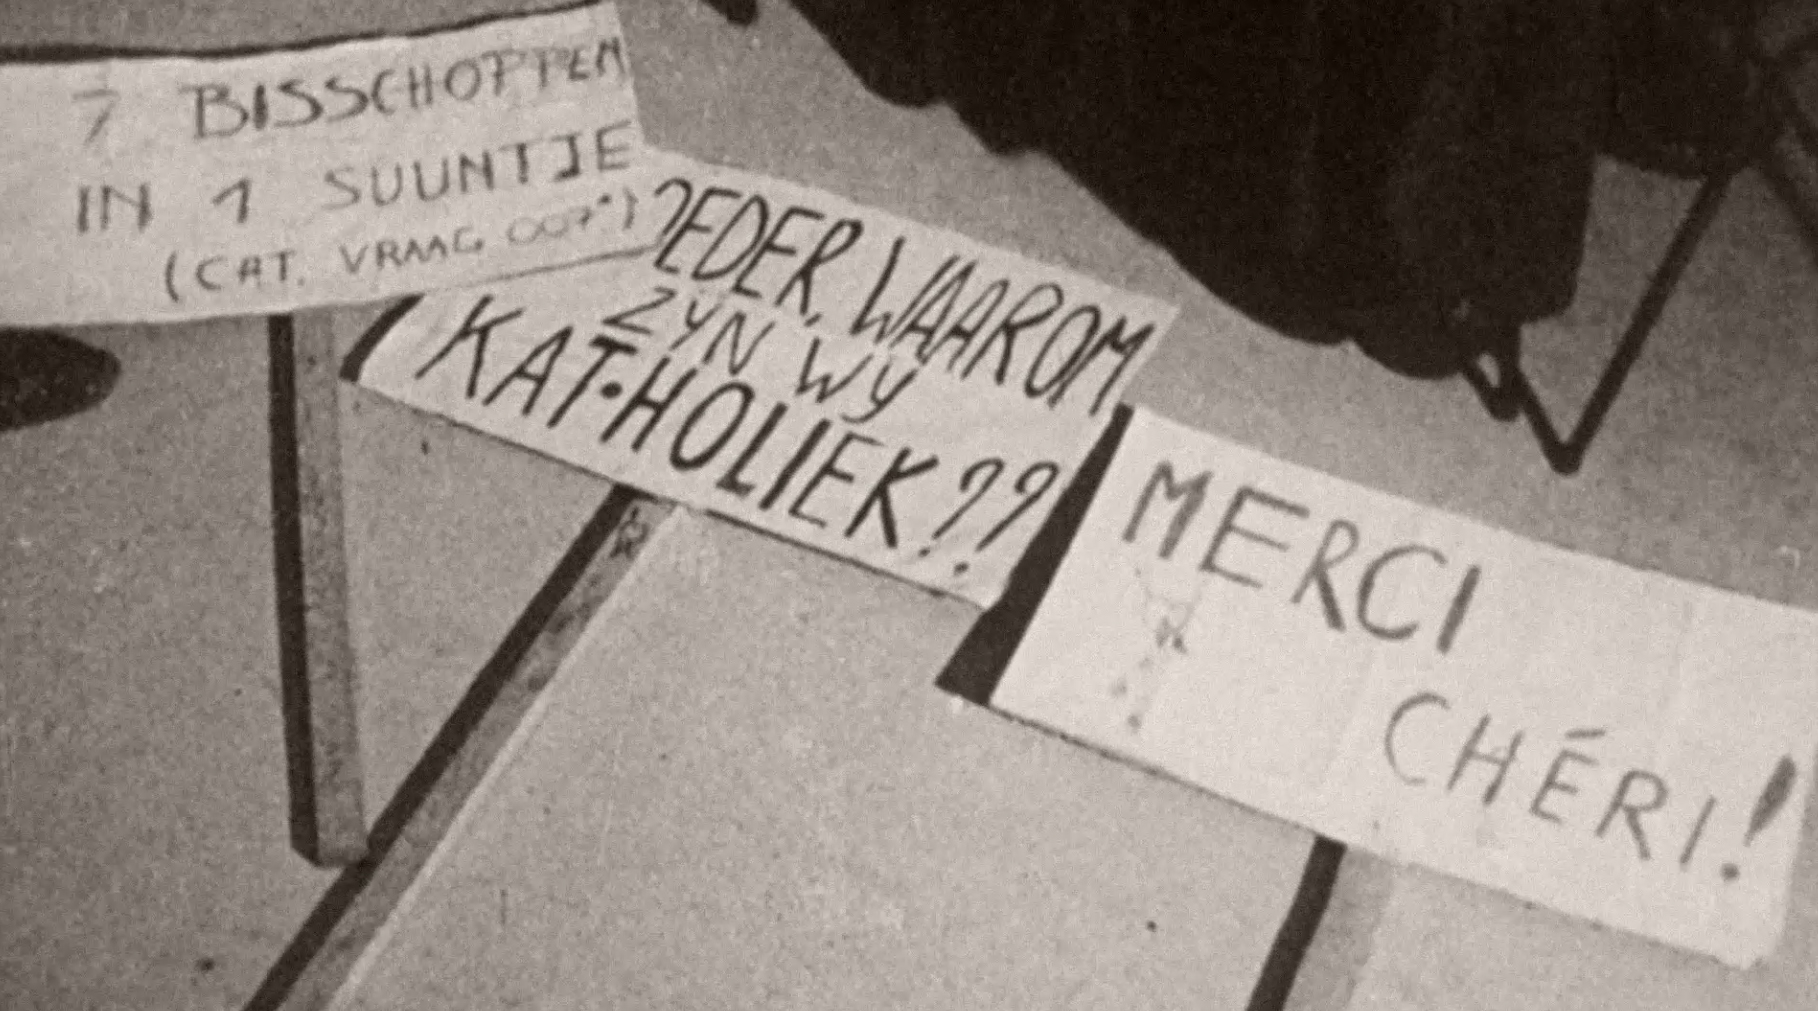 7 BISSCHOPPEN
IN 1 SUUNTJE
(CAT. VRAAG 007*)
WAAROM
ZYN WY
KAT•HOLIEK??
MERCI
CHÉRI!